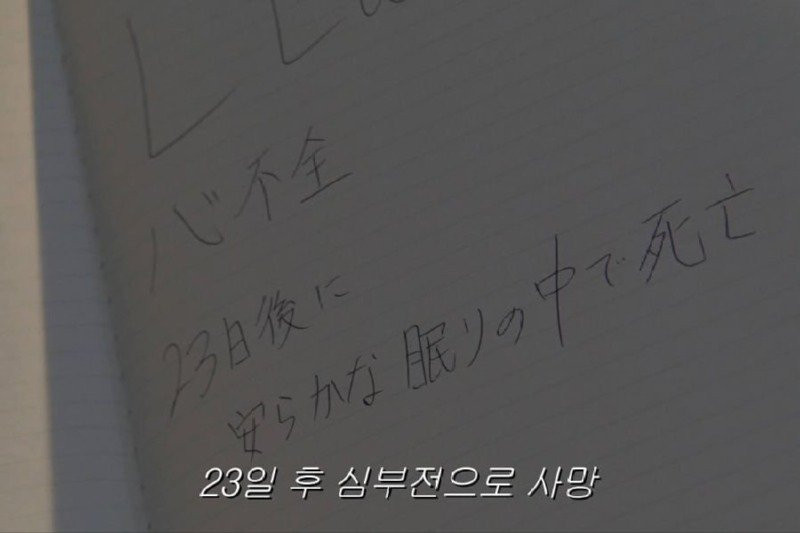 L L
心不全
23日後に
安らかな眠りの中で死亡
23일 후 심부전으로 사망